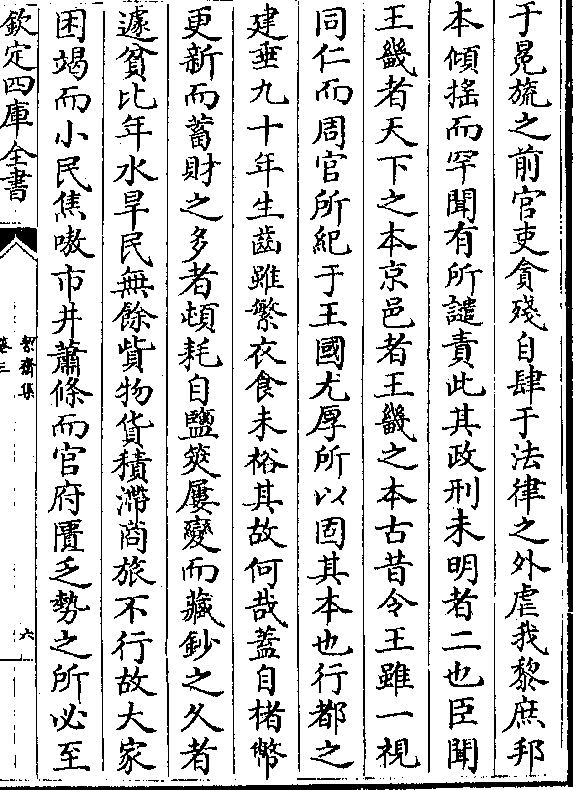 于冕旒之前官吏貪殘自肆于法律之外虐我黎庶邦
本傾搖而罕聞有所譴責此其政刑未明者二也臣聞
王畿者天下之本京邑者王畿之本古昔令王雖一視
同仁而周官所紀于王國尤厚所以固其本也行都之
建垂九十年生齒雖繁衣食未裕其故何哉蓋自楮幣
更新而蓄財之多者頓耗自鹽筴屢變而藏鈔之久者
遽貧比年水旱民無餘貲物貨積滯商旅不行故大家
困竭而小民焦嗷市井蕭條而官府匱乏勢之所必至
欽定四庫全書
絜齋集
卷三
六